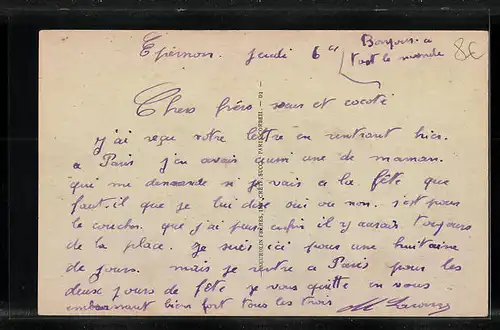 Epernon. jeudi 6
Bonjour a
tout le monde
8€
Chers frère sœur et cocote
j'ai reçu votre lettre en rentrant hier.
a Paris j'en avais aussi une de maman.
qui me demande si je vais a la fête que
faut-il que je lui dise oui ou non. s'est pour
le coucher. que j'ai puis enfin il y aurais toujours
de la place. je suis ici pour une huitaine
de jours. mais je rentre a Paris pour les
deux jours de fête je vous quitte en vous
embrassant bien fort tous les trois